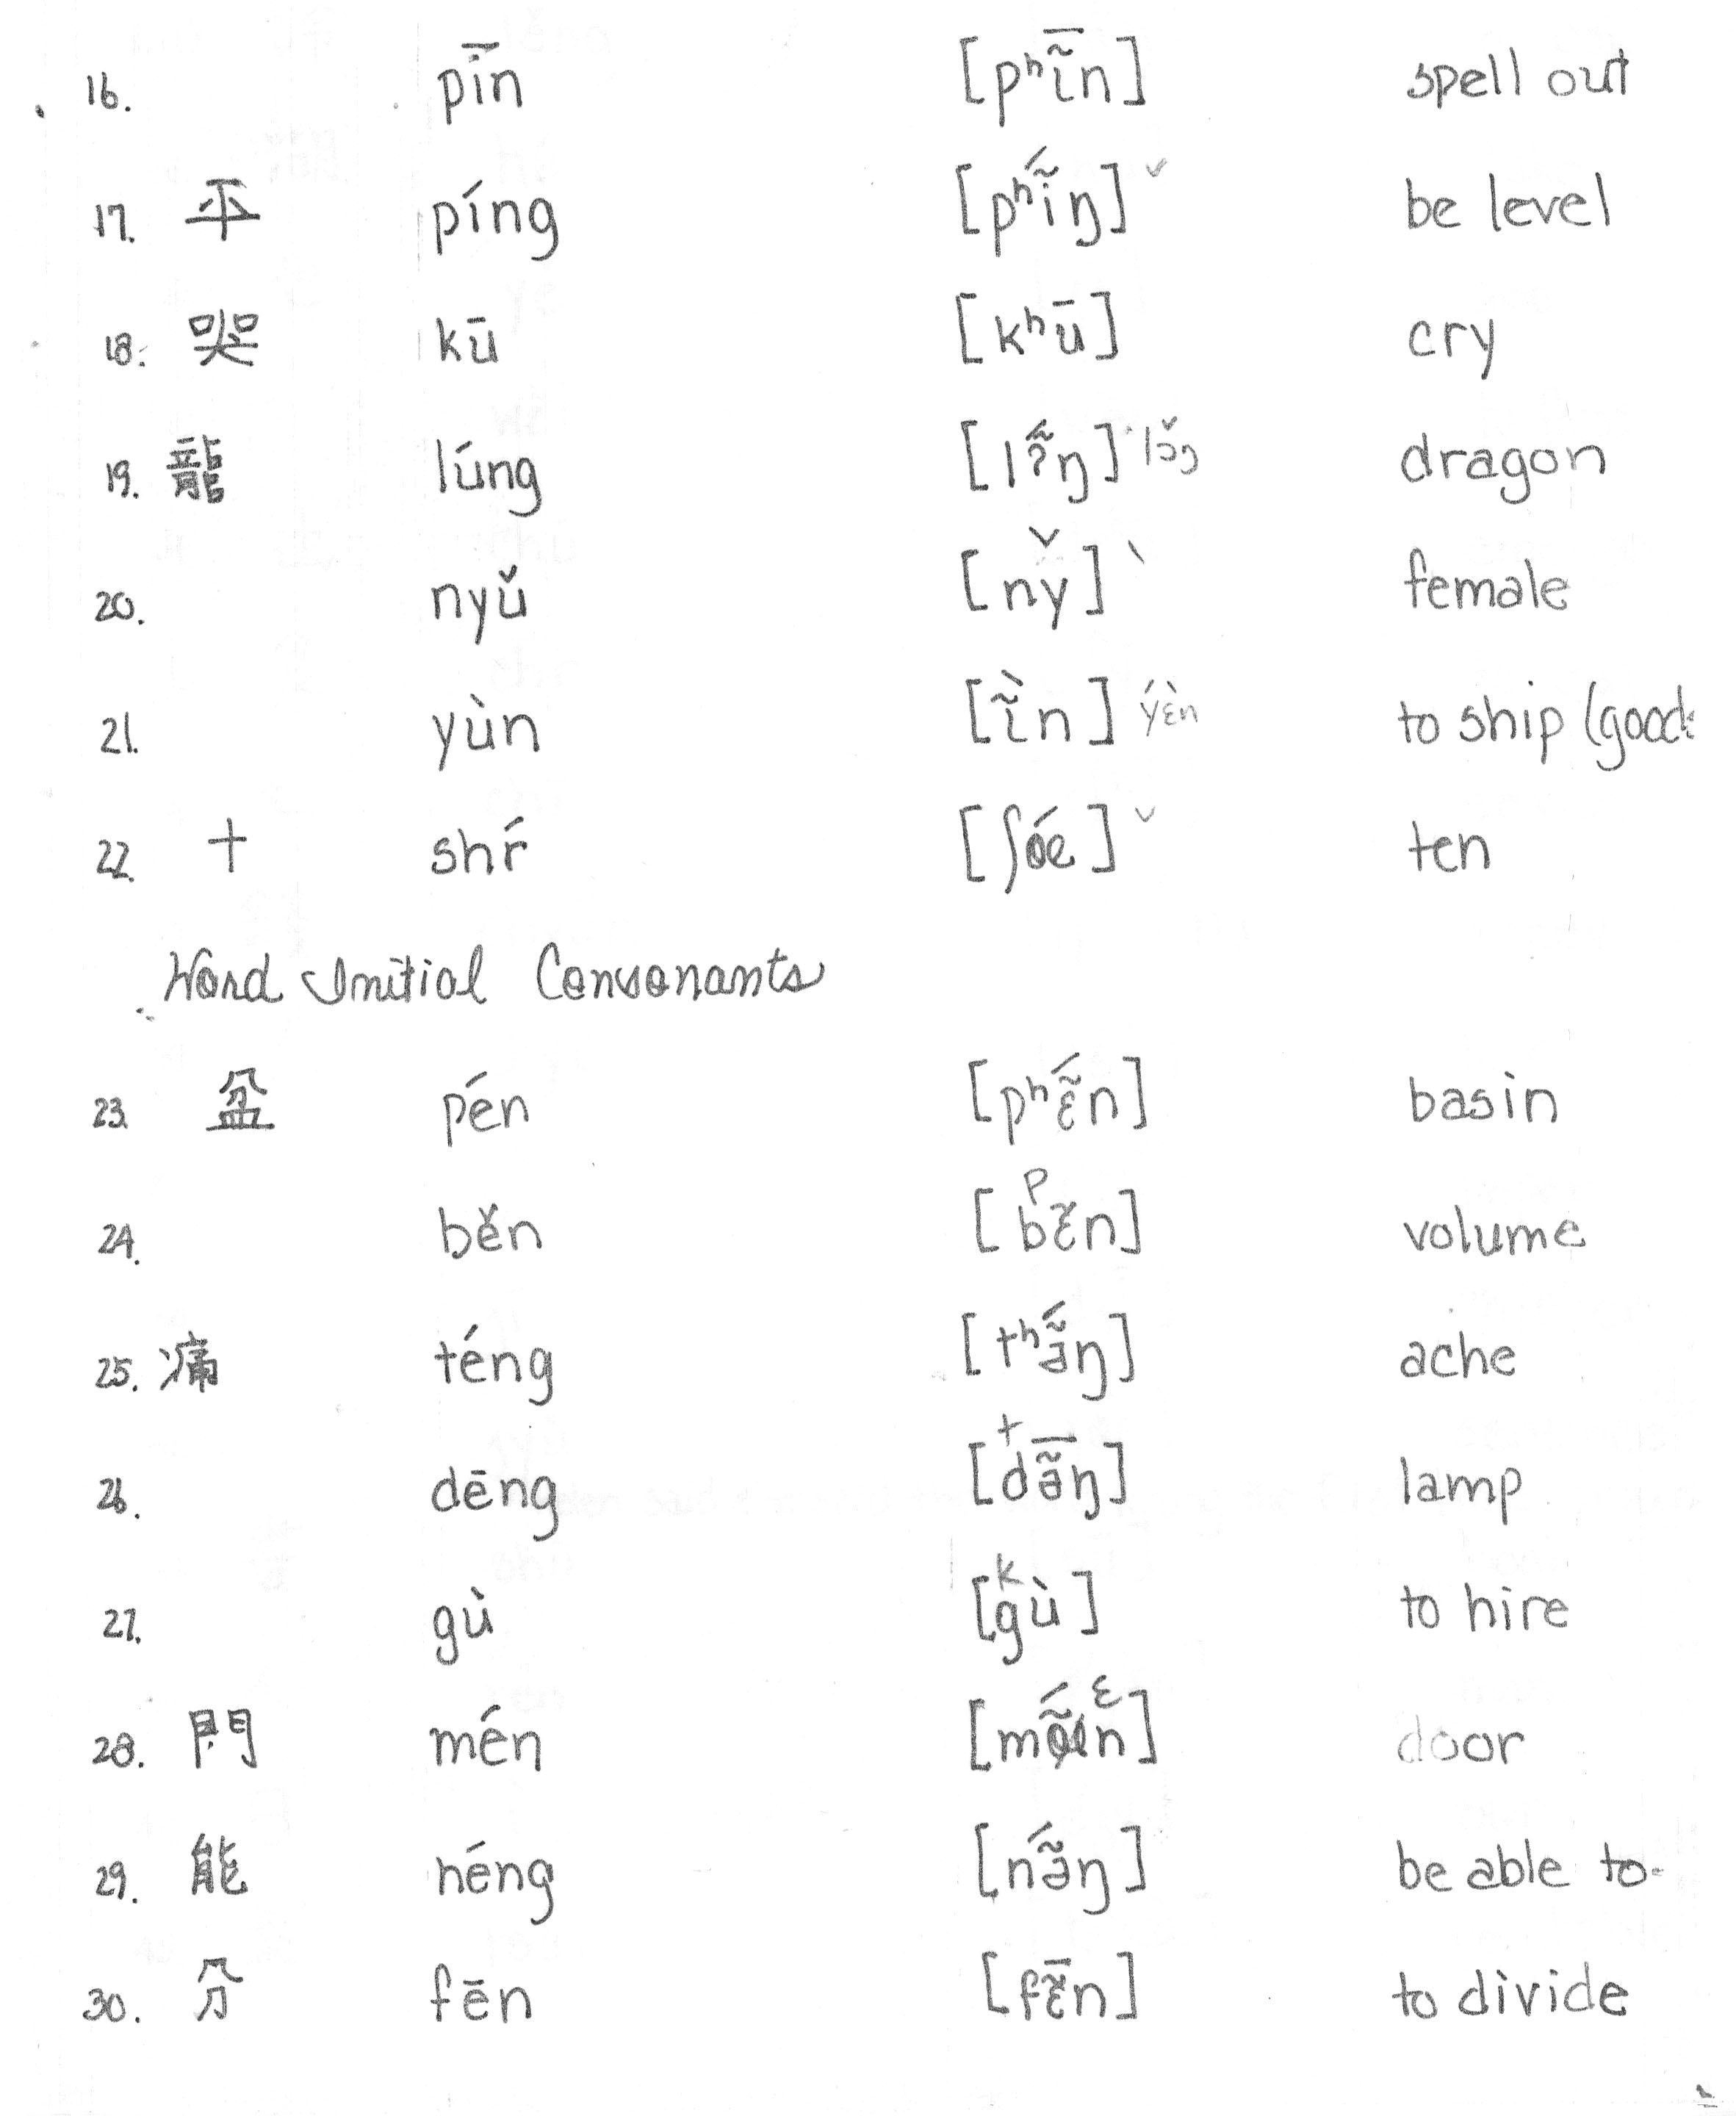 16. pīn [pʰĩ̄n] spell out
17. 平 píng [pʰĩ́ŋ] ˇ be level
18. 哭 kū [kʰū] cry
19. 龍 lúng [lɔ̃́ŋ] lɔ̌ŋ dragon
20. nyǔ [ny̌] ˋ female
21. yùn [ĩ̀n] ýɛ̀n to ship (good
22. 十 shŕ [ʃóe] ˇ ten
Word Initial Consonants
23. 盆 pén [pʰɛ̃́n] basin
24. běn [bɛ̃n] p volume
25. 痛 téng [tʰə̃́ŋ] ache
26. dēng [də̃̄ŋ] t lamp
27. gù [gù] k to hire
28. 門 mén [m n] ɛ door
29. 能 néng [nə̃́ŋ] be able to
30. 分 fēn [fɛ̃̄n] to divide